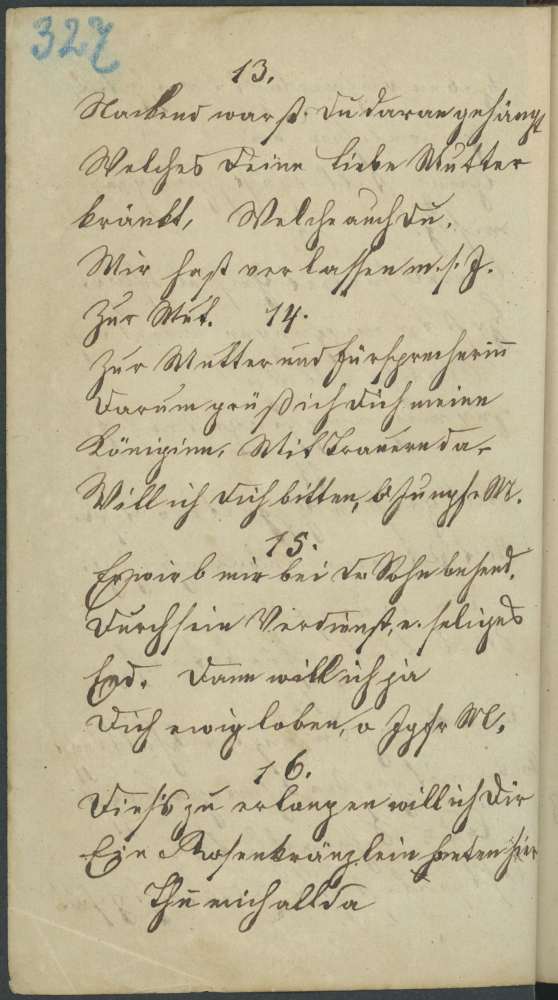 327
13.
Nackend warst Du daran gehängt
Welches Deine liebe Mutter
kränkt, Welche auch Du,
Mir hast verlassen m. s. J.
Zur Mut. 14.
Zur Mutter und Fürsprecherinn
Darum grüß ich Dich meine
Königinn, Mit Trauern da
Will ich Dich bitten, o Jungfr M.
15.
Erwirb mir bei Dr Sohn behend,
Durch sein Verdienst, e. seliges
End. Dann will ich ja
Dich ewig loben, o Jgfr M.
16.
Dieß's zu erlangen will ich Dir
Ein Rosenkränzlein beten hier
Thu mich allda